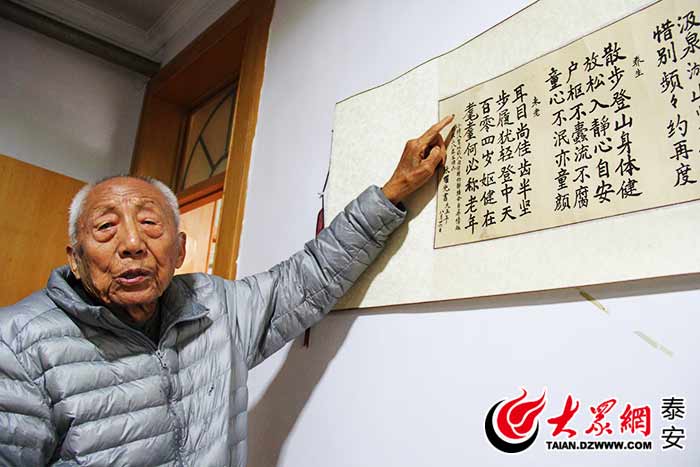 汲泉
惜别频々约再度
养生
散步登山身体健
放松入静心自安
户枢不蠹流不腐
童心不泯亦童颜
未老
耳目尚佳齿半坚
步履犹轻登中天
百零四岁妪健在
耄耋何必称老年
大眾網
泰安
TAIAN.DZWWW.COM